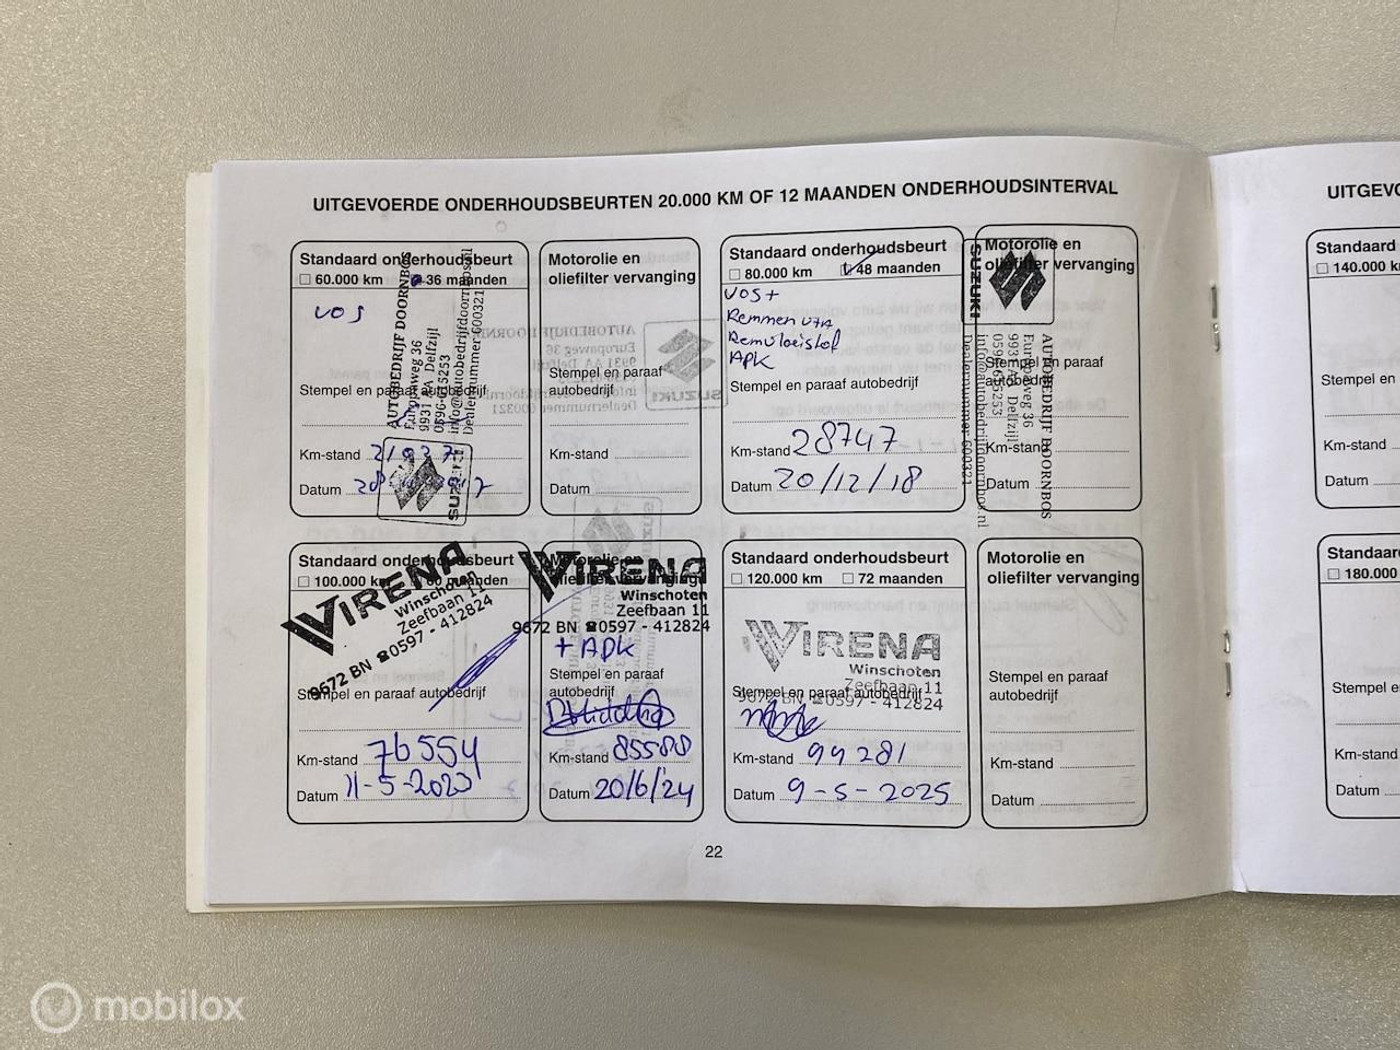 UITGEVOERDE ONDERHOUDSBEURTEN 20.000 KM OF 12 MAANDEN ONDERHOUDSINTERVAL
Standaard onderhoudsbeurt
60.000 km 36 maanden
VOS
AUTOBEDRIJF DOORNBOS
Europaweg 36
9931 AA Delfzijl
0596-615253
info@autobedrijfdoornbos.nl
Dealernummer 600321
SUZUKI
Stempel en paraaf autobedrijf
Km-stand
Datum
Motorolie en
oliefilter vervanging
Stempel en paraaf
autobedrijf
Km-stand
Datum
Standaard onderhoudsbeurt
80.000 km 48 maanden
VOS+
Remmen
Remvloeistof
APK
Stempel en paraaf autobedrijf
Km-stand 28747
Datum 20/12/18
Motorolie en
oliefilter vervanging
SUZUKI
AUTOBEDRIJF DOORNBOS
Europaweg 36
9931 AA Delfzijl
0596-615253
info@autobedrijfdoornbos.nl
Dealernummer 600321
Stempel en paraaf
autobedrijf
Km-stand
Datum
Standaard onderhoudsbeurt
100.000 km 60 maanden
VIRENA
Winschoten
Zeefbaan 11
9672 BN ☎0597 - 412824
Stempel en paraaf autobedrijf
Km-stand 76554
Datum 11-5-2023
Motorolie en
oliefilter vervanging
VIRENA
Winschoten
Zeefbaan 11
9672 BN ☎0597 - 412824
+ APK
Stempel en paraaf
autobedrijf
Km-stand 85588
Datum 20/6/'24
Standaard onderhoudsbeurt
120.000 km 72 maanden
VIRENA
Winschoten
Zeefbaan 11
9672 BN ☎0597 - 412824
Stempel en paraaf autobedrijf
Km-stand 99281
Datum 9-5-2025
Motorolie en
oliefilter vervanging
Stempel en paraaf
autobedrijf
Km-stand
Datum
22
Standaard
140.000
Stempel en
Km-stand
Datum
Standaard
180.000
Stempel
Km-stand
Datum
mobilox